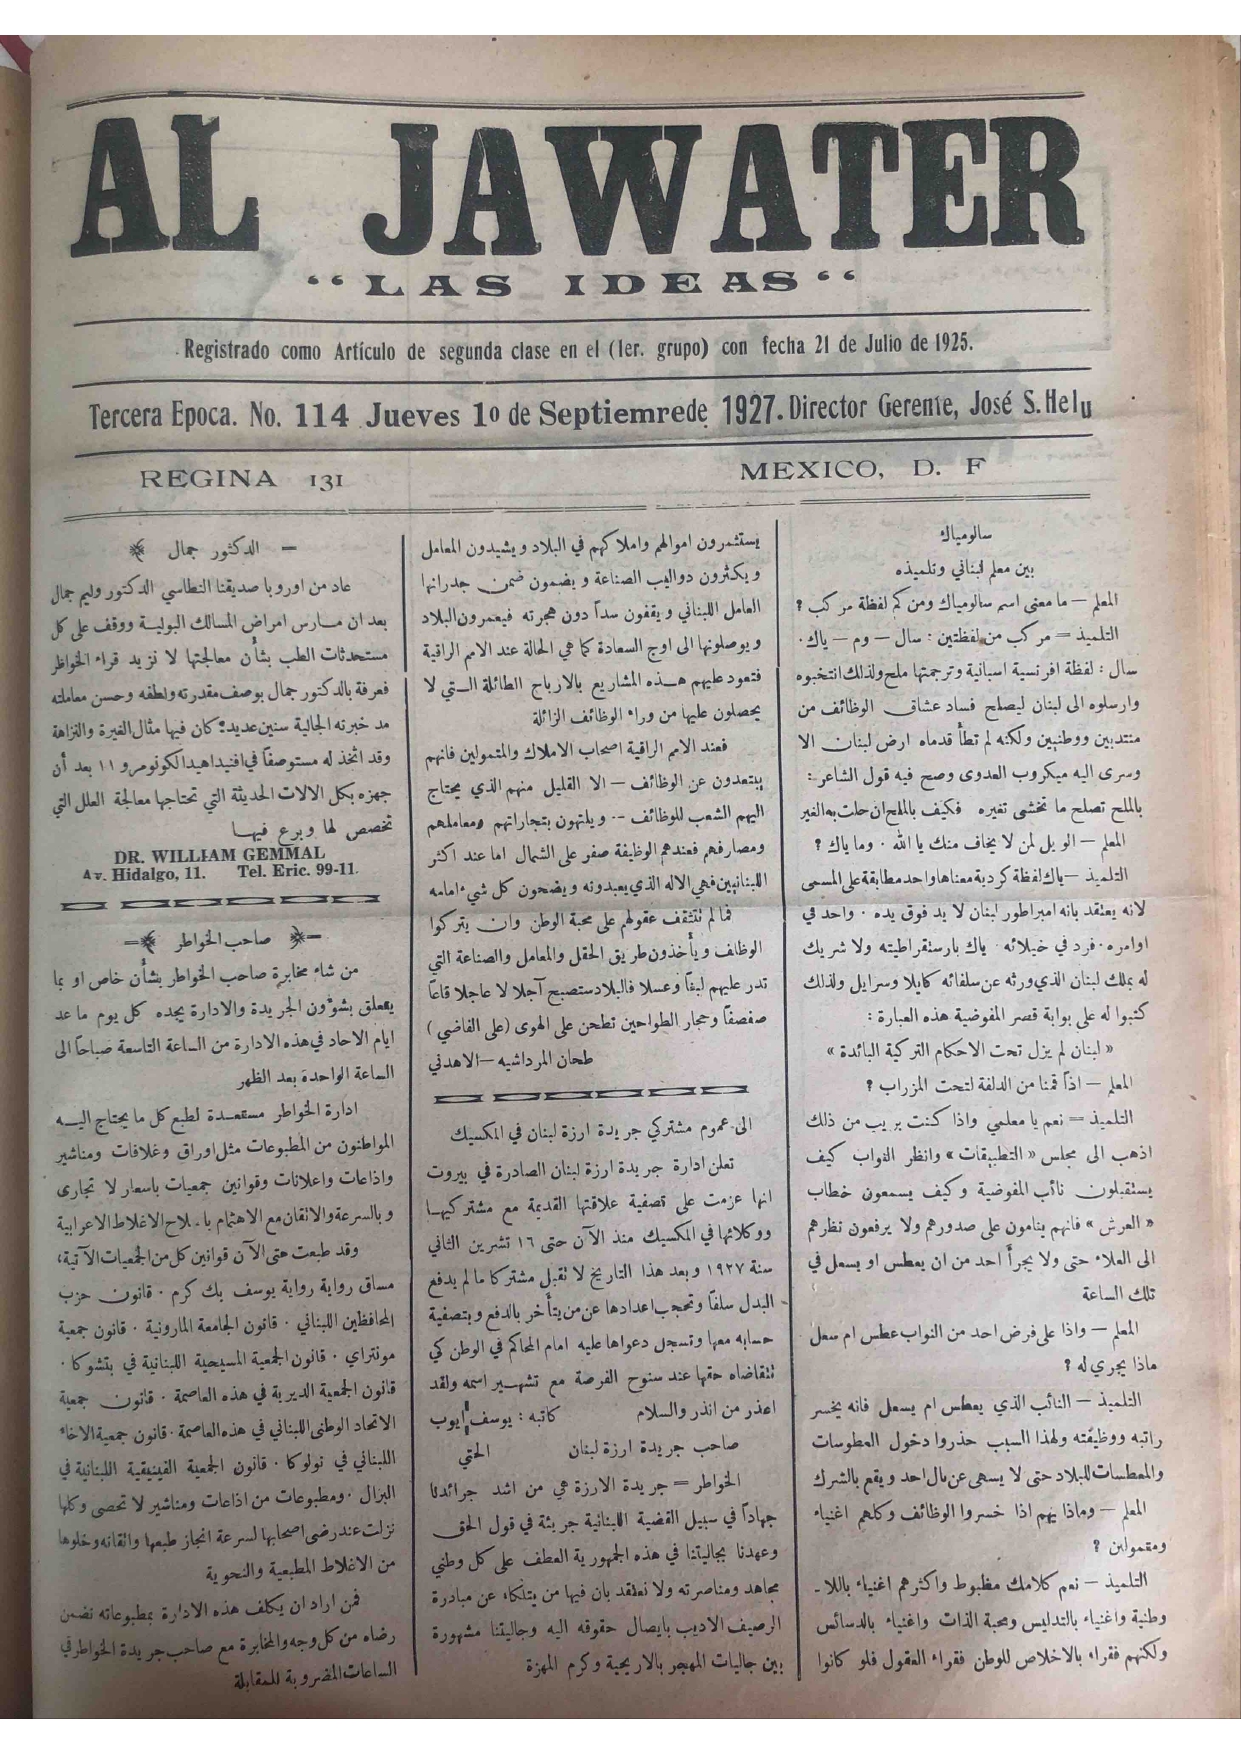 AL JAWATER
“ LAS IDEAS “
Registrado como Artículo de segunda clase en el (1er. grupo) con fecha 21 de Julio de 1925.
Tercera Epoca. No. 114 Jueves 1º de Septiemrede 1927. Director Gerente, José S. Helu
REGINA 131
MEXICO, D. F
سالومياك
بين معلم لبناني وتلميذه
المعلم – ما معنى اسم سالومياك ومن كم لفظة مركب ؟
التلميذ = مركب من لفظتين : سال – وم – ياك .
سال : لفظة افرنسية اسبانية وترجمتها ملح ولذلك انتخبوه
وارسلوه الى لبنان ليصلح فساد عشاق الوظائف من
منتدبين ووطنيين ولكنه لم تطأ قدماه ارض لبنان الا
وسرى اليه ميكروب العدوى وصح فيه قول الشاعر :
بالملح تصلح ما تخشى تغيره فكيف بالملح ان حلت به الغير
المعلم – الويل لمن لا يخاف منك يا الله . وما ياك ؟
التلميذ – ياك لفظة كردية معناها واحد مطابقة على المسمى
لانه يعتقد بانه امبراطور لبنان لا يد فوق يده . واحد في
اوامره . فرد في خيلائه . ياك بارستقراطيته ولا شريك
له بملك لبنان الذي ورثه عن سلفائه كايلا وسرايل ولذلك
كتبوا له على بوابة قصر المفوضية هذه العبارة :
« لبنان لم يزل تحت الاحكام التركية البائدة »
المعلم – اذاً قمنا من الدلفة لتحت المزراب ؟
التلميذ = نعم يا معلمي واذا كنت بريب من ذلك
اذهب الى مجلس « التطبيقات » وانظر النواب كيف
يستقبلون نائب المفوضية وكيف يسمعون خطاب
« العرش » فانهم ينامون على صدورهم ولا يرفعون نظرهم
الى العلاء حتى ولا يجرأ احد من ان يعطس او يسعل في
تلك الساعة
المعلم – واذا على فرض احد من النواب عطس ام سعل
ماذا يجري له ؟
التلميذ – النائب الذي يعطس ام يسعل فانه يخسر
راتبه ووظيفته ولهذا السبب حذروا دخول المطوسات
والمعطسات للبلاد حتى لا يسهى عن بال احد ويقع بالشرك
المعلم – وماذا يهم اذا خسروا الوظائف وكلهم اغنياء
ومتمولين ؟
التلميذ – نعم كلامك مظبوط واكثرهم اغنياء باللا -
وطنية واغنياء بالتدليس ومحبة الذات واغنياء بالدسائس
ولكنهم فقراء بالاخلاص للوطن فقراء العقول فلو كانوا
يستثمرون اموالهم واملاكهم في البلاد ويشيدون المعامل
ويكثرون دواليب الصناعة ويضمون ضمن جدرانها
العامل اللبناني ويقفون سداً دون هجرته فيعمرون البلاد
ويوصلونها الى اوج السعادة كما هي الحالة عند الامم الراقية
فتعود عليهم هذه المشاريع بالارباح الطائلة التي لا
يحصلون عليها من وراء الوظائف الزائلة
فعند الامم الراقية اصحاب الاملاك والمتمولين فانهم
يبتعدون عن الوظائف – الا القليل منهم الذي يحتاج
اليهم الشعب للوظائف – ويلتهون بتجاراتهم ومعاملهم
ومصارفهم فعندهم الوظيفة صفر على الشمال اما عند اكثر
اللبنانيين فهي الاله الذي يعبدونه ويضحون كل شيء امامه
فما لم تتثقف عقولهم على محبة الوطن وان يتركوا
الوظائف ويأخذون طريق الحقل والمعامل والصناعة التي
تدر عليهم لبناً وعسلا فالبلاد ستصبح آجلا لا عاجلا قاعاً
صفصفاً وحجار الطواحين تطحن على الهوى ( على الفاضي )
طحان المرداشيه – الاهدني
الى عموم مشتركي جريدة ارزة لبنان في المكسيك
تعلن ادارة جريدة ارزة لبنان الصادرة في بيروت
انها عزمت على تصفية علاقتها القديمة مع مشتركيها
ووكلائها في المكسيك منذ الآن حتى ١٦ تشرين الثاني
سنة ١٩٢٧ وبعد هذا التاريخ لا تقبل مشتركا ما لم يدفع
البدل سلفاً وتحجب اعدادها عن من يتأخر بالدفع وبتصفية
حسابه معها وتسجل دعواها عليه امام المحاكم في الوطن كي
تتقاضاه حقها عند سنوح الفرصة مع تشهير اسمه ولقد
اعذر من انذر والسلام كاتبه : يوسف ايوب
صاحب جريدة ارزة لبنان الحتي
الخواطر = جريدة الارزة هي من اشد جرائدنا
جهاداً في سبيل القضية اللبنانية جريئة في قول الحق
وعهدنا بجاليتنا في هذه الجمهورية العطف على كل وطني
مجاهد ومناصرته ولا نعتقد بان فيها من يتلكاء عن مبادرة
الرصيف الاديب بايصال حقوقه اليه وجاليتنا مشهورة
بين جاليات المهجر بالاريحية وكرم المهزة
– الدكتور جمال
عاد من اوروبا صديقنا النطاسي الدكتور وليم جمال
بعد ان مارس امراض المسالك البولية ووقف على كل
مستحدثات الطب بشأن معالجتها لا نزيد قراء الخواطر
فعرفة بالدكتور جمال بوصف مقدرته ولطفه وحسن معاملته
مد خبرته الجالية سنين عديدة كان فيها مثال الغيرة والنزاهة
وقد اتخذ له مستوصفاً في افنيدا هيدالكو نومرو ١١ بعد أن
جهزه بكل الالات الحديثة التي تحتاجها معالجة العلل التي
تخصص لها وبرع فيها
DR. WILLIAM GEMMAL
Av. Hidalgo, 11. Tel. Eric. 99-11.
صاحب الخواطر
من شاء مخابرة صاحب الخواطر بشأن خاص او بما
يتعلق بشؤون الجريدة والادارة يجده كل يوم ما عد
ايام الاحاد في هذه الادارة من الساعة التاسعة صباحاً الى
الساعة الواحدة بعد الظهر
ادارة الخواطر مستعدة لطبع كل ما يحتاج اليه
المواطنون من المطبوعات مثل اوراق وغلافات ومناشير
واذاعات واعلانات وقوانين جمعيات باسعار لا تجارى
وبالسرعة والاتقان مع الاهتمام باصلاح الاغلاط الاعرابية
وقد طبعت حتى الآن قوانين كل من الجمعيات الآتية ،
مساق رواية رواية يوسف بك كرم . قانون حزب
المحافظين اللبناني . قانون الجامعة المارونية . قانون جمعية
مونتراي . قانون الجمعية المسيحية اللبنانية في بتشوكا .
قانون الجمعية الديرية في هذه العاصمة . قانون جمعية
الاتحاد الوطني اللبناني في هذه العاصمة . قانون جمعية الاخاء
اللبناني في تولوكا . قانون الجمعية الفينيقية اللبنانية في
البرال . ومطبوعات من اذاعات ومناشير لا تحصى وكلها
نزلت عند رضى اصحابها لسرعة انجاز طبعها واتقانه وخلوها
من الاغلاط المطبعية والنحوية
فمن اراد ان يكلف هذه الادارة بمطبوعاته نضمن
رضاه من كل وجه والمخابرة مع صاحب جريدة الخواطر في
الساعات المضروبة للمقابلة